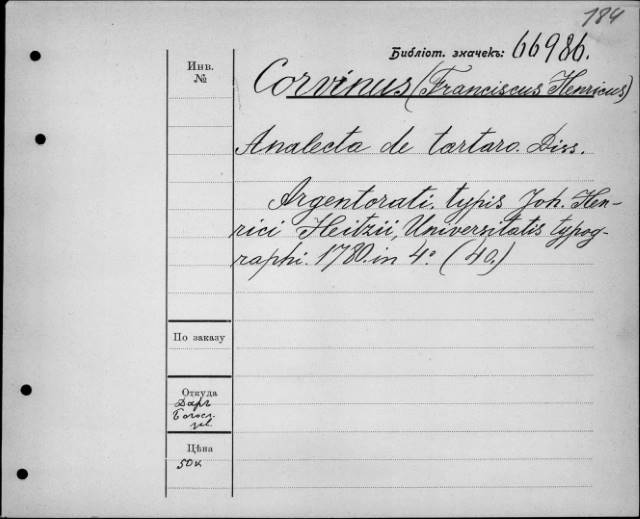 184
Библіот. значекъ: 66986.
Инв.
№
Corvinus (Franciscus Henricus)
Analecta de tartaro. Diss.
Argentorati, typis Joh. Hen-
rici Heitzii, Universitatis typog-
raphi. 1780. in 4º (40.)
По заказу
Откуда
Даръ
Цѣна
50к